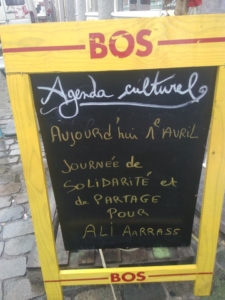 BOS
Agenda culturel
Aujourd'hui 1er Avril
JOURNÉE de
SOLIDARITÉ et
de PARTAGE
POUR
ALI AARRASS
BOS